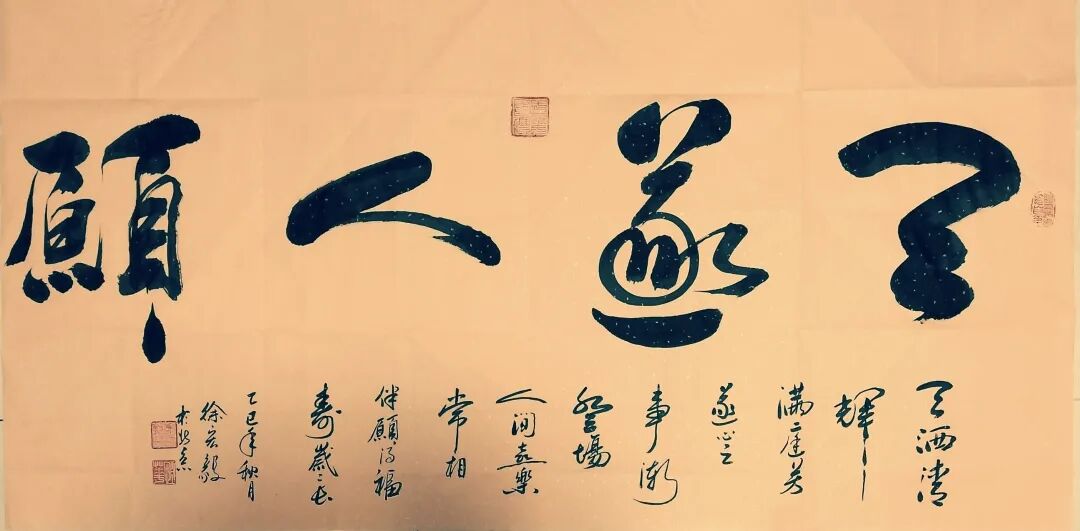 天遂人願
天洒清
輝
满庭芳
遂心之
事渐
登場
人間喜樂
常相
伴願得福
壽歲歲長
乙巳年秋月
徐宏毅